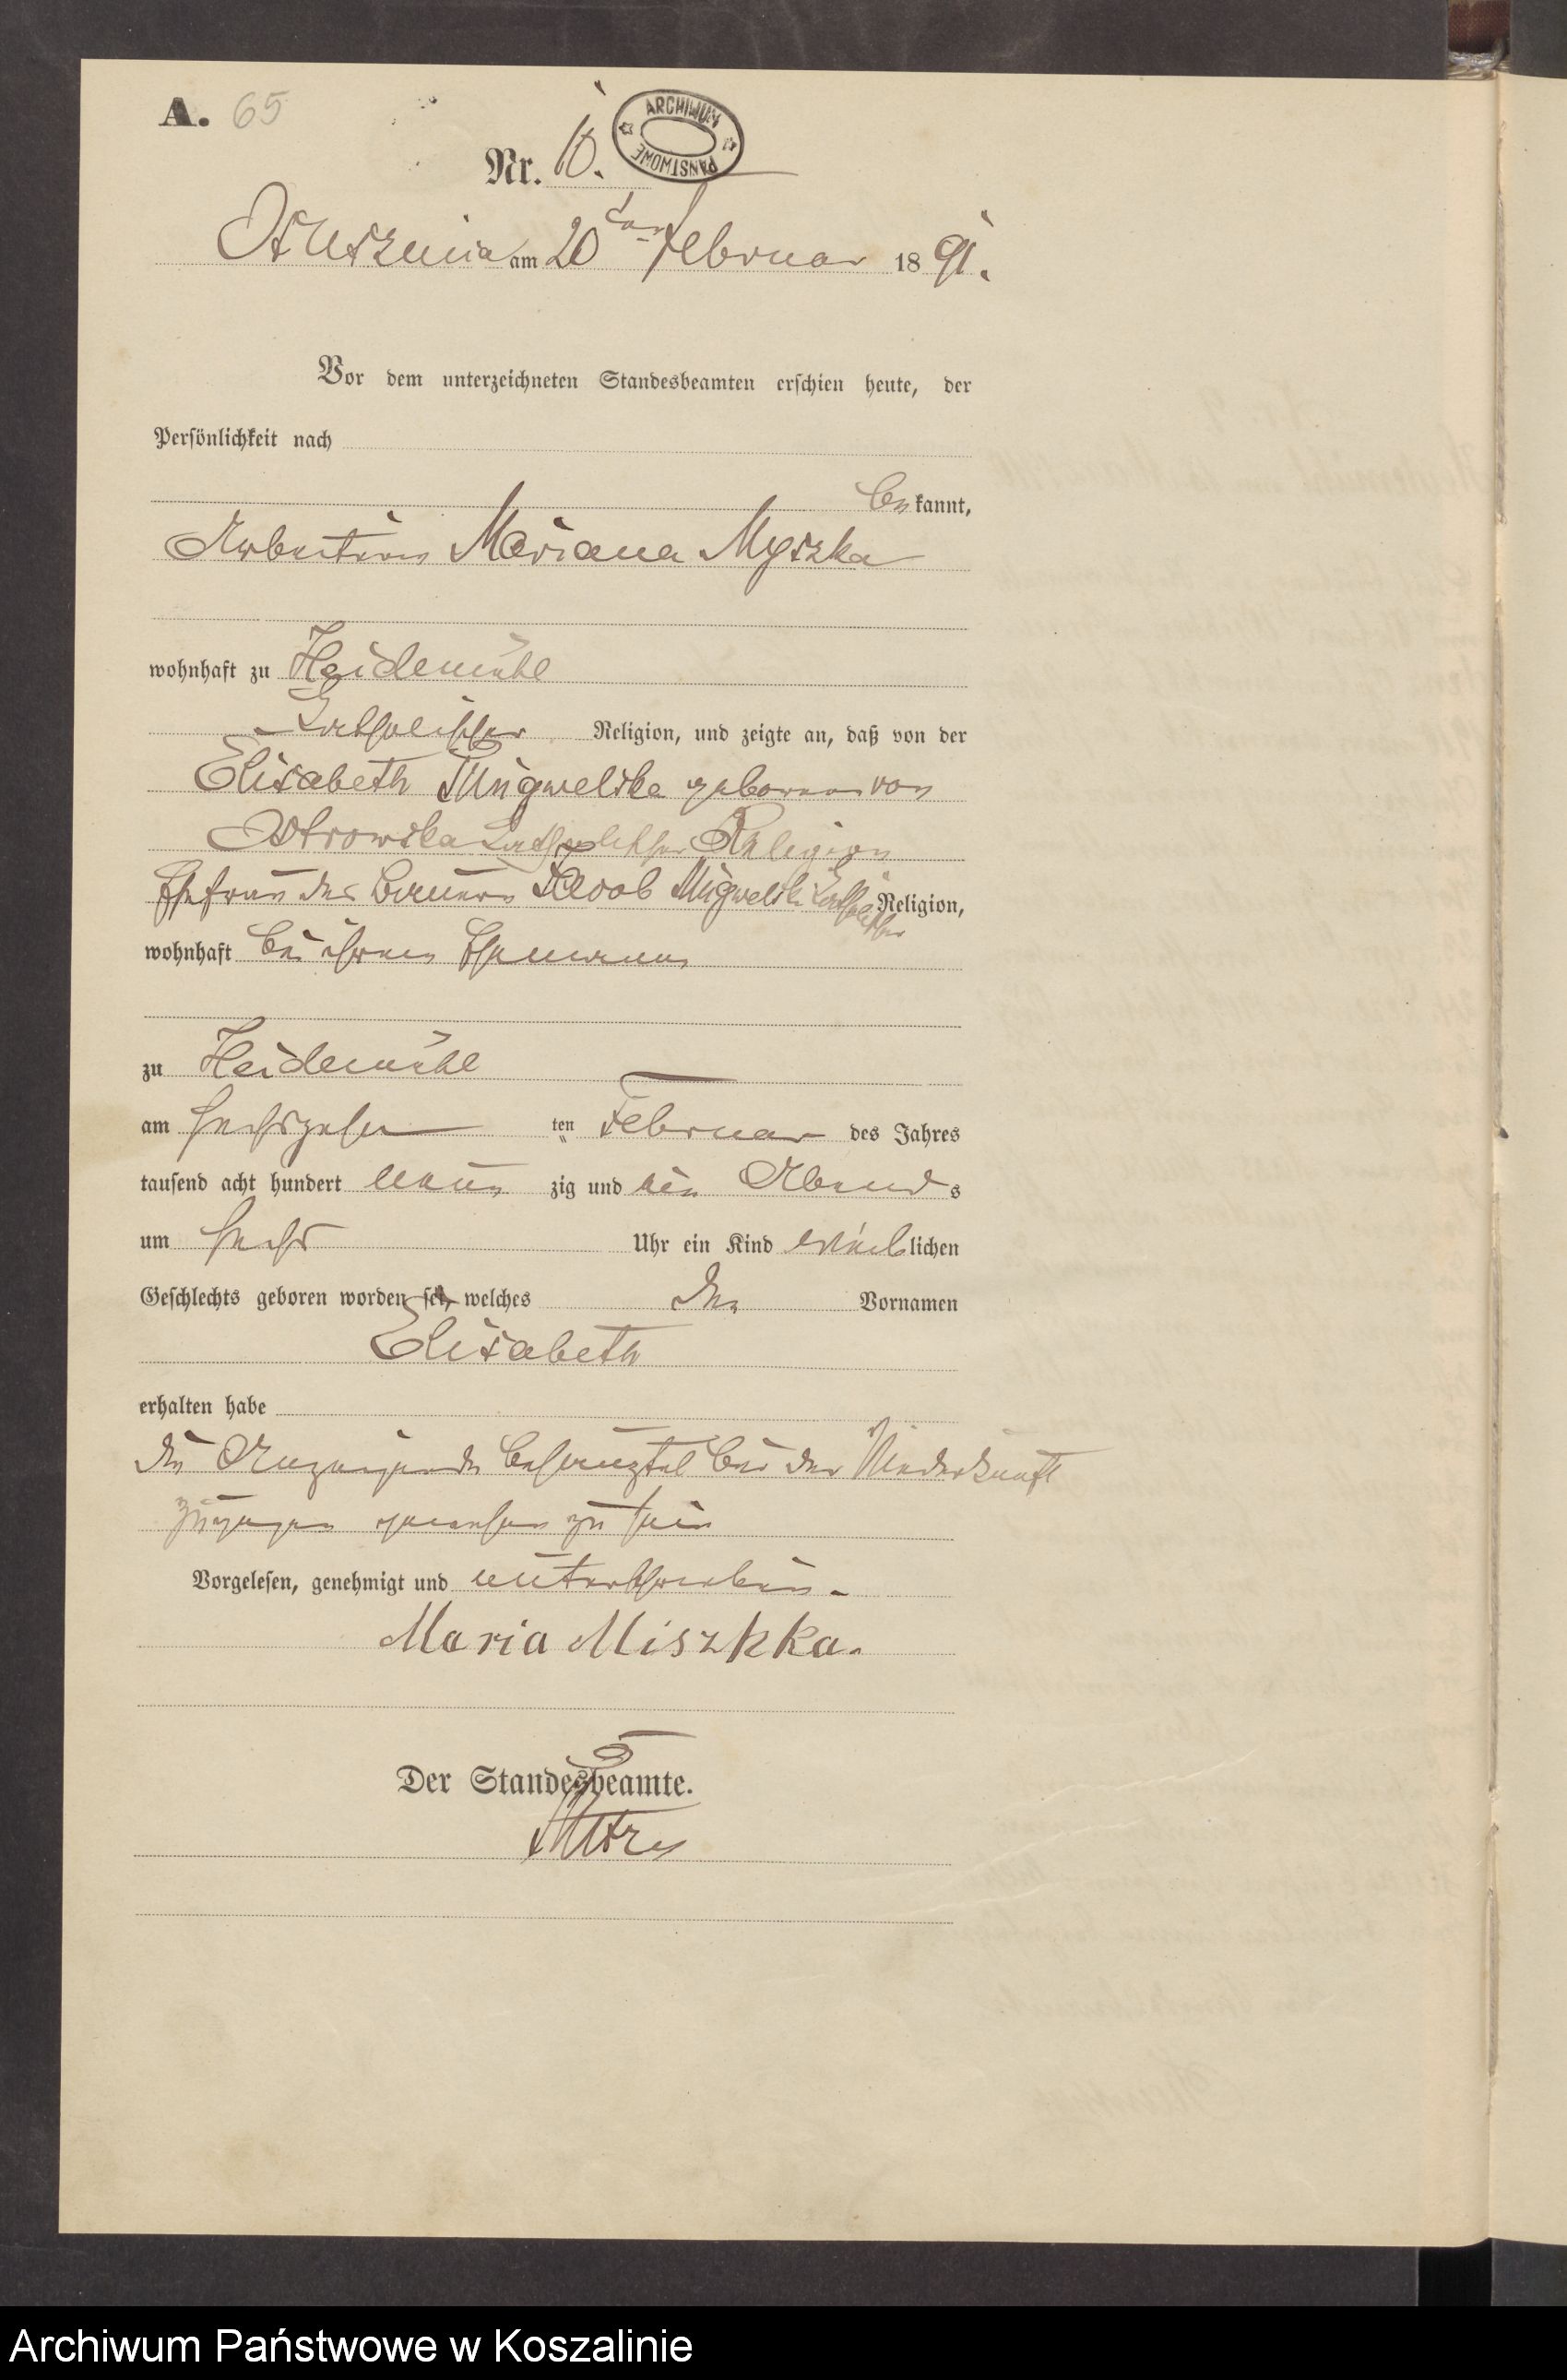 A. 65
Nr. 10.
ARCHIWUM PAŃSTWOWE
am 20ten Februar 1891.
Vor dem unterzeichneten Standesbeamten erschien heute, der
Persönlichkeit nach
be kannt,
Arbeiterin Mariana Myszka
wohnhaft zu Heidemühl
katholischer Religion, und zeigte an, daß von der
Elisabeth geborene von
Ostrowska katholischer Religion
Ehefrau des Bauern Jacob katholischer Religion,
wohnhaft bei ihrem Ehemann
zu Heidemühl
am sechszehn ten Februar des Jahres
tausend acht hundert neun zig und ein Abend s
um sechs Uhr ein Kind weib lichen
Geschlechts geboren worden sei, welches den Vornamen
Elisabeth
erhalten habe
die Anzeigende bei der Niederkunft
zugegen gewesen zu sein
Vorgelesen, genehmigt und unterschrieben.
Maria Miszkka.
Der Standesbeamte.
Archiwum Państwowe w Koszalinie